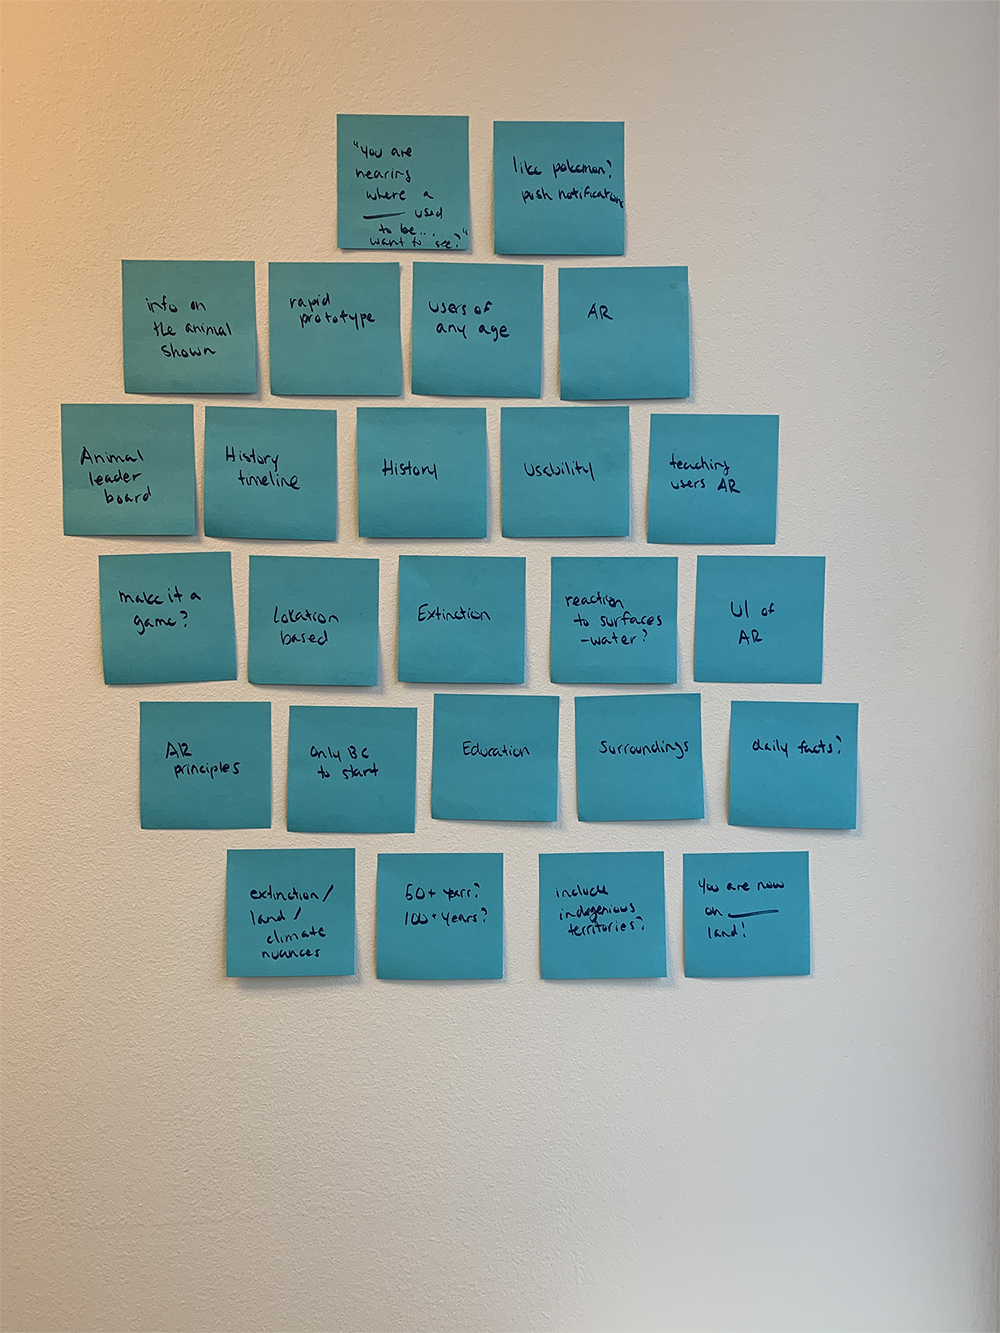 "You are
nearing
where a
____ used
to be...
want to see?"
like pokemon?
push notification
info on
the animal
shown
rapid
prototype
users of
any age
AR
Animal
leader
board
History
timeline
History
Usability
teaching
users AR
make it a
game?
Lokation
based
Extinction
reaction
to surfaces
-water?
UI of
AR
AR
principles
Only BC
to start
Education
Surroundings
daily facts?
extinction/
land/
climate
nuances
50+ years?
100+ years?
include
indegenious
territories?
You are now
on ____
land!